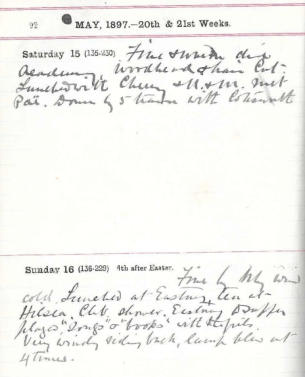 92 MAY, 1897.—20th & 21st Weeks.
Saturday 15 (135-230) Fine & warm did
Academy, Woodhead & hair Cut.
Lunched with Cherry & M. met
Pat. Down by 5 train with
Sunday 16 (136-229) 4th after Easter. Fine by wind
cold. Lunched at Eastney, tea at
Hilsea. Club, shower. Eastney & supper
played "Songs" & "books" with the girls
Very windy riding back, lamp blew out
4 times.